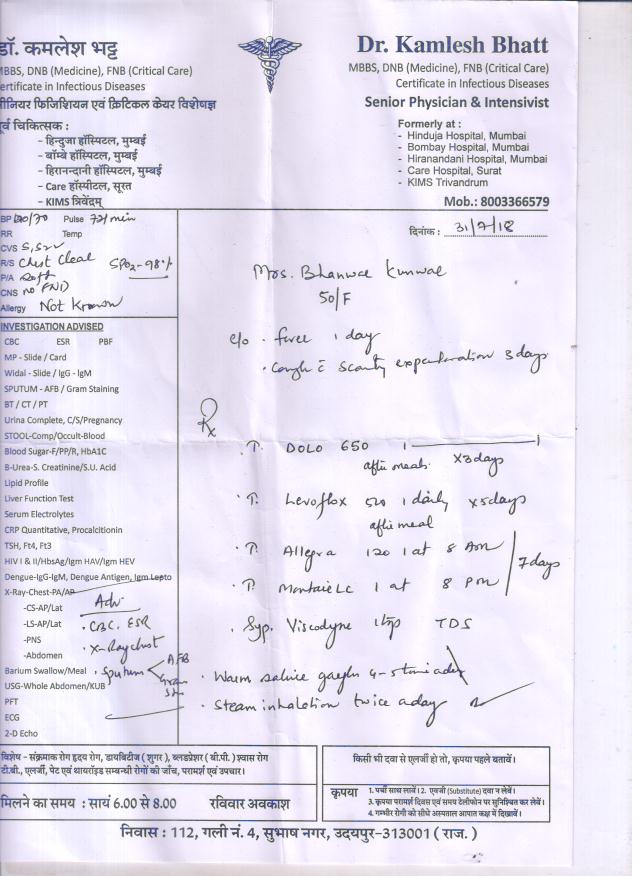 डॉ. कमलेश भट्ट
MBBS, DNB (Medicine), FNB (Critical Care)
ertificate in Infectious Diseases
ीनियर फिजिशियन एवं क्रिटिकल केयर विशेषज्ञ
पूर्व चिकित्सक :
- हिन्दुजा हॉस्पिटल, मुम्बई
- बॉम्बे हॉस्पिटल, मुम्बई
- हिरानन्दानी हॉस्पिटल, मुम्बई
- Care हॉस्पीटल, सूरत
- KIMS त्रिवेंद्रम्
Dr. Kamlesh Bhatt
MBBS, DNB (Medicine), FNB (Critical Care)
Certificate in Infectious Diseases
Senior Physician & Intensivist
Formerly at :
- Hinduja Hospital, Mumbai
- Bombay Hospital, Mumbai
- Hiranandani Hospital, Mumbai
- Care Hospital, Surat
- KIMS Trivandrum
Mob.: 8003366579
दिनांक : 31/7/18
BP 120/70 Pulse 72/min
RR Temp
CVS S1S2N
R/S Chest Clear SPO2-98%
P/A Soft
CNS no FND
Allergy Not Known
Mrs. Bhanwar Kunwar
50/F
c/o . fever 1 day
. Cough c̄ scanty expectoration 3 days
INVESTIGATION ADVISED
CBC ESR PBF
MP - Slide / Card
Widal - Slide / IgG - IgM
SPUTUM - AFB / Gram Staining
BT / CT / PT
Urina Complete, C/S/Pregnancy
STOOL-Comp/Occult-Blood
Blood Sugar-F/PP/R, HbA1C
B-Urea-S. Creatinine/S.U. Acid
Lipid Profile
Liver Function Test
Serum Electrolytes
CRP Quantitative, Procalcitonin
TSH, Ft4, Ft3
HIV I & II/HbsAg/Igm HAV/Igm HEV
Dengue-IgG-IgM, Dengue Antigen, Igm Lepto
X-Ray-Chest-PA/AP
-CS-AP/Lat
-LS-AP/Lat
-PNS
-Abdomen
Barium Swallow/Meal
USG-Whole Abdomen/KUB
PFT
ECG
2-D Echo
Adv
. CBC, ESR
. X-Ray chest
. Sputum < AFB
Gram
Rx
. T. DOLO 650 1 — 1
after meals X3days
. T. Levoflox 500 1 daily X5days
after meal
. T. Allegra 120 1 at 8 AM
7 days
. T. Montair LC 1 at 8 PM
. Syp. Viscodyne 1tsp TDS
. Warm saline gargles 4-5 times a day
. Steam inhalation twice a day
विशेष - संक्रमाक रोग हृदय रोग, डायबिटीज ( शुगर ), ब्लडप्रेशर ( बी.पी. ) श्वास रोग
टी.बी., एलर्जी, पेट एवं थायरॉइड सम्बन्धी रोगों की जाँच, परामर्श एवं उपचार।
मिलने का समय : सायं 6.00 से 8.00 रविवार अवकाश
किसी भी दवा से एलर्जी हो तो, कृपया पहले बतावें।
कृपया
1. पर्ची साथ लावें। 2. एवजी (Substitute) दवा न लेवें।
3. कृपया परामर्श दिवस एवं समय टेलीफोन पर सुनिश्चित कर लेवें।
4. गम्भीर रोगी को सीधे अस्पताल आपात कक्ष में दिखावें।
निवास : 112, गली नं. 4, सुभाष नगर, उदयपुर-313001 ( राज. )